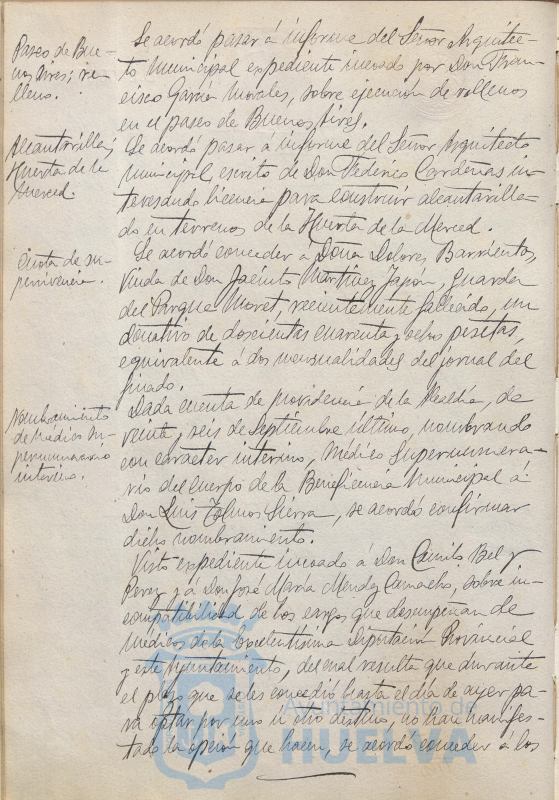 Paseo de Bue-
nos Aires; re-
lleno.
Se acordó pasar á informe del Señor Arquitec-
to Municipal expediente incoado por Don Fran-
cisco García Morales, sobre ejecución de rellenos
en el paseo de Buenos Aires.
Alcantarilla;
Huerta de la
Merced.
Se acordó pasar á informe del Señor Arquitecto
municipal, escrito de Don Federico Cardenas in-
teresando licencia para construir alcantarilla-
do en terrenos de la Huerta de la Merced.
Cuota de su-
pervivencia.
Se acordó conceder á Doña Dolores Barriento,
viuda de Don Jacinto Martínez Japón, guarda
del Parque Moret, recientemente fallecido, un
donativo de doscientas cuarenta y ocho pesetas,
equivalente á dos mensualidades del jornal del
finado.
Nombramiento
de Médico su-
pernumerario
interino.
Dada cuenta de providencia de la Alcaldía, de
veinte y seis de Septiembre último, nombrando
con carácter interino, Médico Supernumera-
rio del cuerpo de la Beneficencia Municipal á
Don Luis Sierra, se acordó confirmar
dicho nombramiento.
Visto expediente incoado á Don Camilo Bel y
Perez y á Don José María Mendez Camacho, sobre in-
compatibilidad de los cargos que desempeñan de
médicos de la Excelentísima Diputación Provincial
y este Ayuntamiento, del cual resulta que durante
el plazo que se les concedió hasta el día de ayer pa-
ra optar por uno ú otro destino, no han manifes-
tado la opción que hacen, se acordó conceder á los
Ayuntamiento de
HUELVA